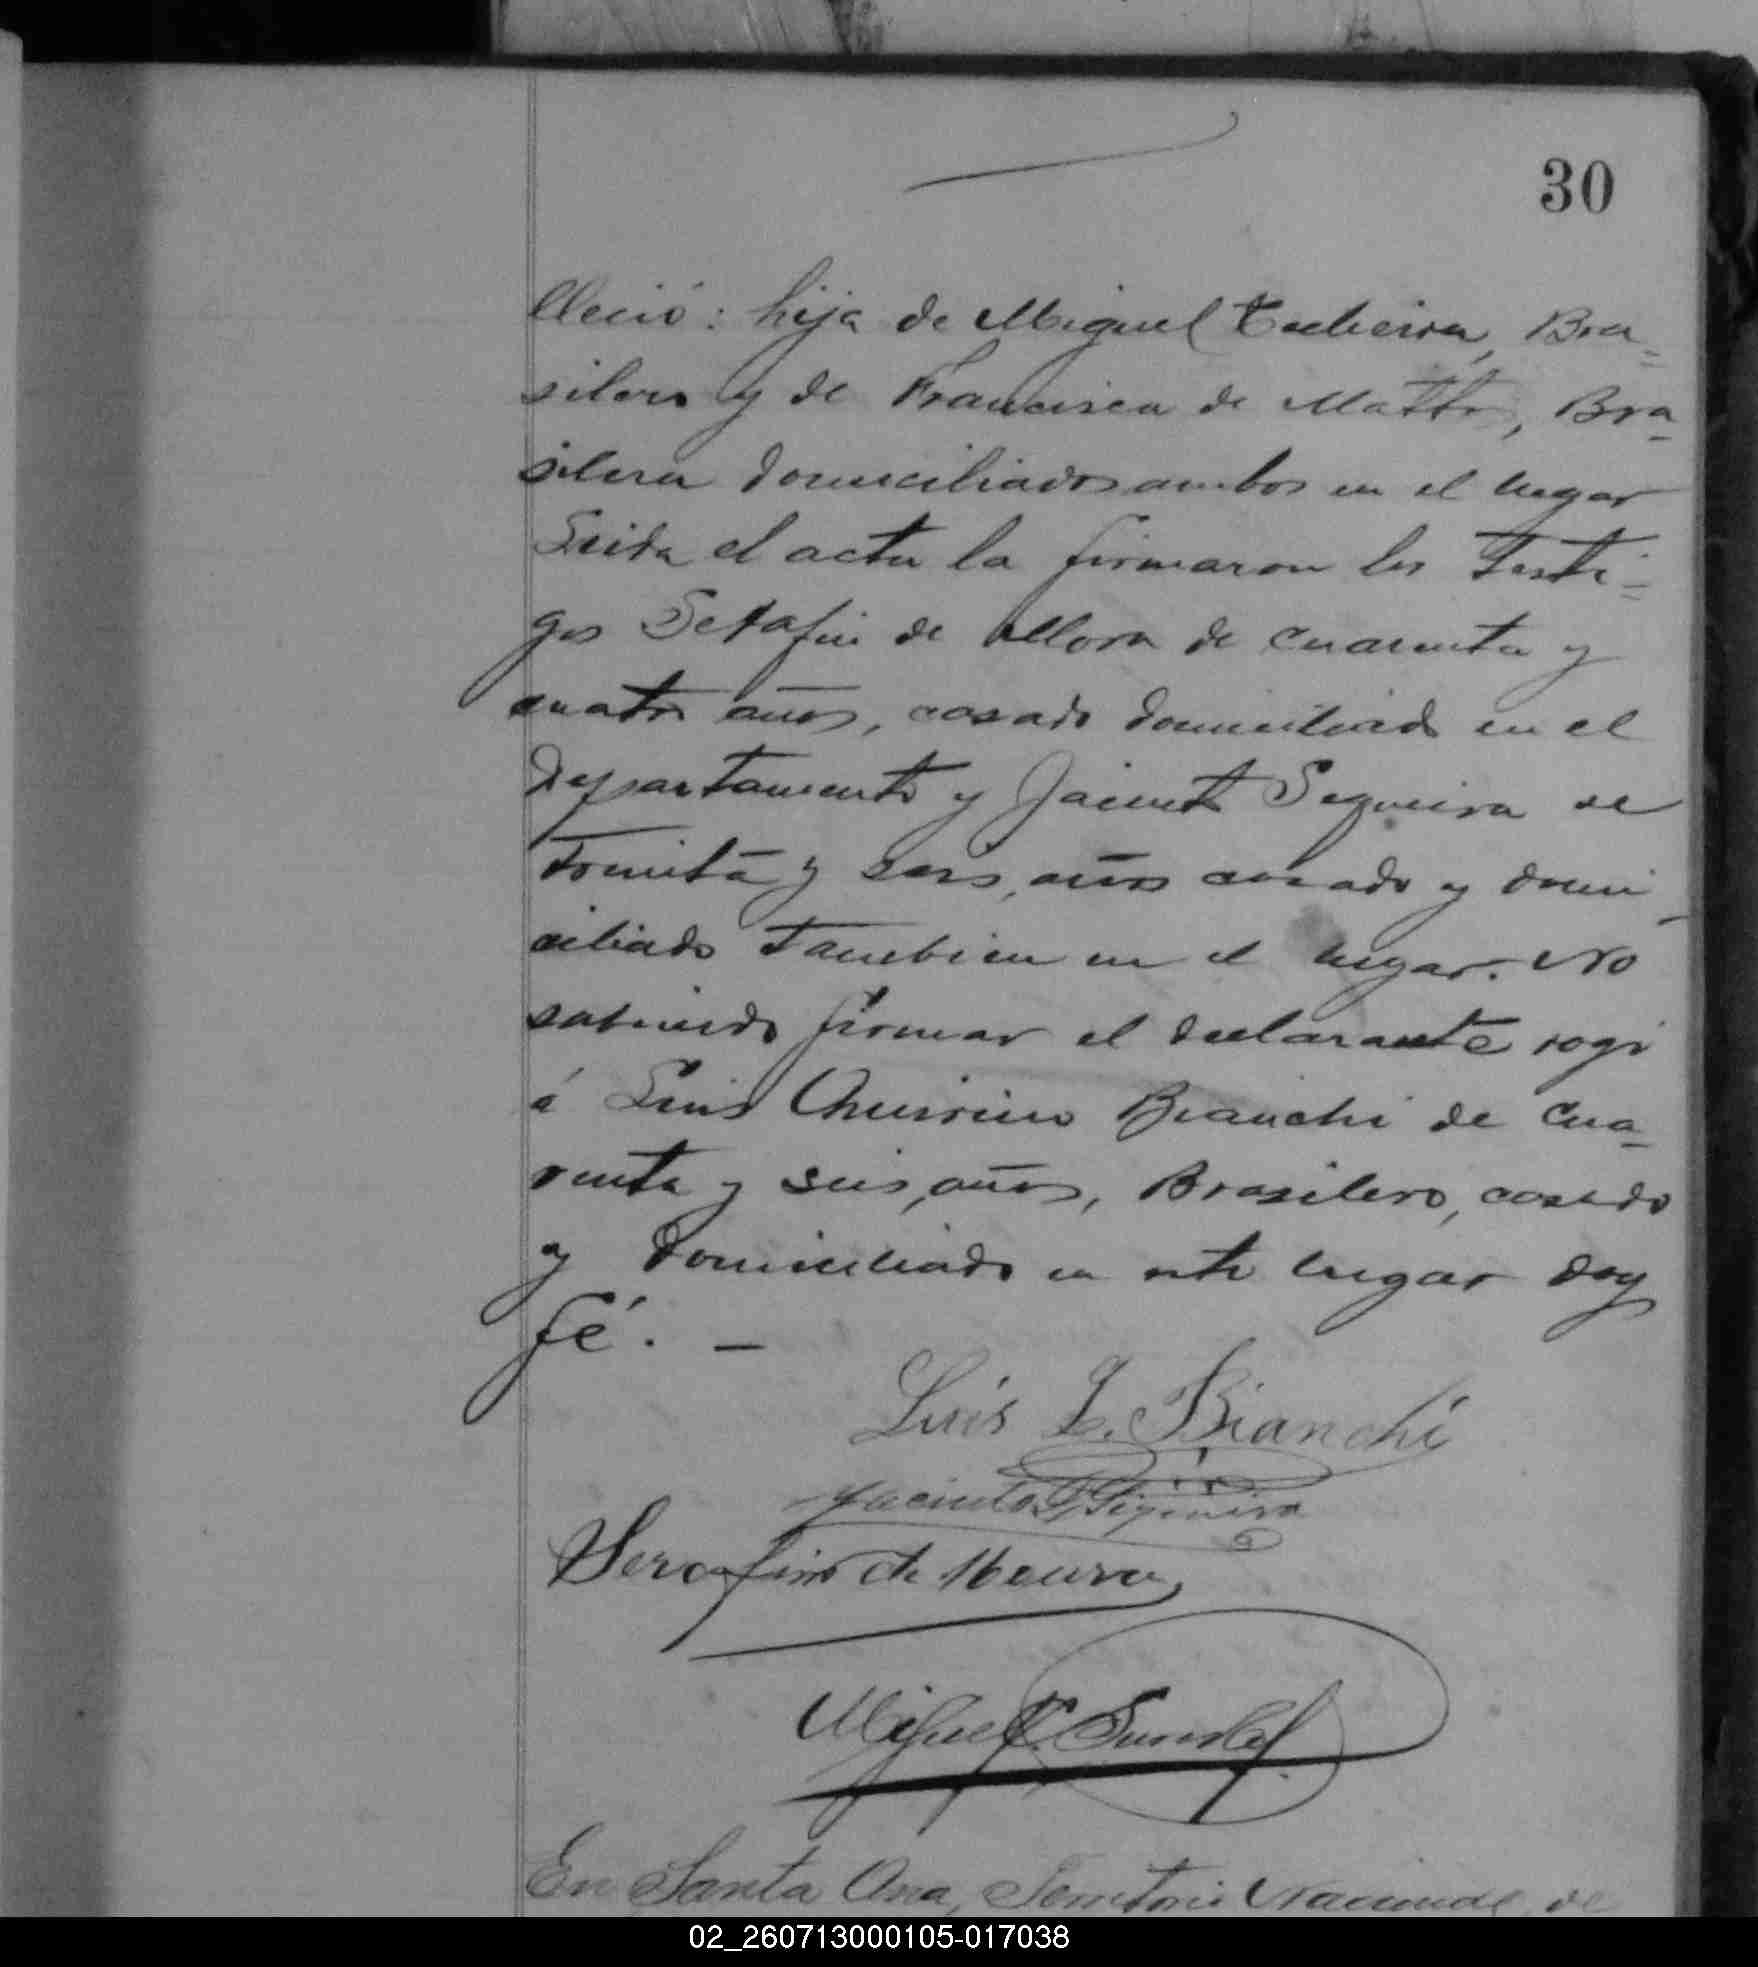 30
lleció: hija de Miguel Techeira, Bra=
silero y de Francisca de Mattos, Bra=
silera domiciliados ambos en el lugar
Leida el acta la firmaron los Testi=
gos Serafin de Mora de cuarenta y
cuatro años, casado domiciliado en el
Departamento y Jacinto Sequeira de
treinta y seis, años casado y domi-
ciliado tambien en el lugar. No
sabiendo firmar el declarante rogó
á Luis Quirino Bianchi de cua=
renta y seis, años, Brasilero, casado
y domiciliado en este lugar doy
fé. —
Luis Q. Bianchi
Jacinto Siqueira
Serafim de Moura
Miguel
En Santa Ana, Territorio Nacional de
02_260713000105-017038